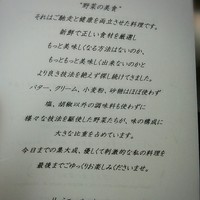 "野菜の美食"
それはご馳走と健康を両立させた料理です。
新鮮で正しい食材を厳選し
もっと美味しくなる方法はないのか、
もっともっと美味しく出来ないのかと
より良き技法を絶えず探し続けてきました。
バター、クリーム、小麦粉、砂糖はほぼ使わず
塩、胡椒以外の調味料も使わずに
様々な技法を駆使した野菜たちが、味の構成に
大きな比重を占めています。
今日までの集大成、優しくて刺激的な私の料理を
最後までごゆっくりお楽しみくださいませ。